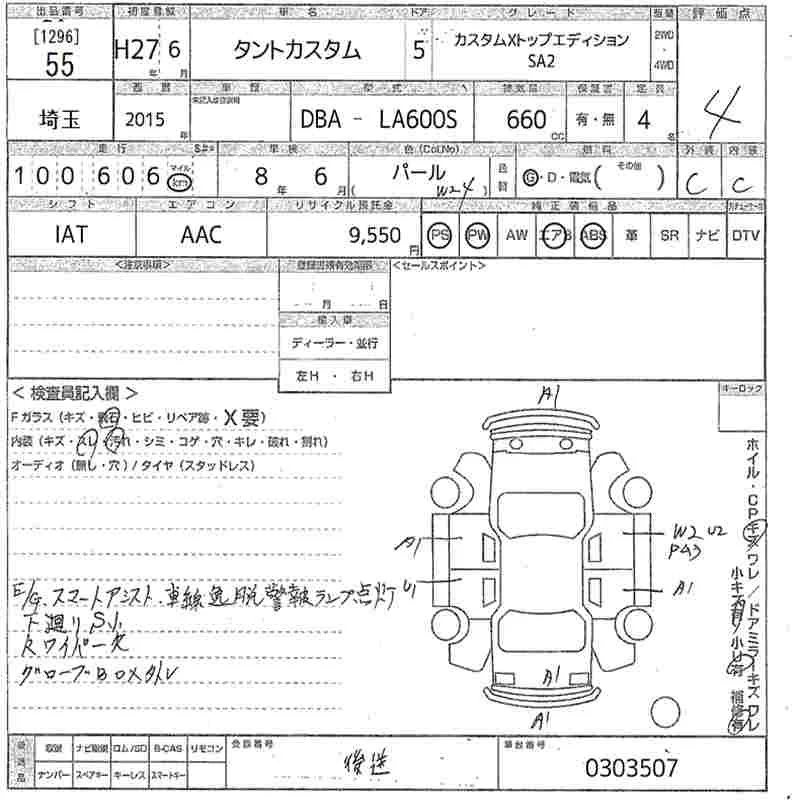 出品番号 初度登録 車名 ドア グレード 駆動 評価点
[1296]
55
H27 6
年 月
タントカスタム
5
カスタムXトップエディション
SA2
2WD
4WD
4
埼玉
西暦 車歴 型式 排気量 保証書 定員
2015
年
DBA - LA600S
660
CC
有・無
4
名
走行 車検 色(Col.No) 燃料 外装 内装
100606
マイル
km
8 年 6 月
パール
(W24)
色替
G・D・電気( その他 )
C
C
シフト エアコン リサイクル預託金 純正装備品
IAT
AAC
9,550
円
PS PW AW エアB ABS 革 SR ナビ DTV
<注意事項>
登録書類有効期限
月 日
輸入車
ディーラー・並行
左H ・ 右H
<セールスポイント>
キーロック
< 検査員記入欄 >
Fガラス (キズ・飛石・ヒビ・リペア跡・X要)
内装 (キズ・スレ・汚れ・シミ・コゲ・穴・キレ・破れ・割れ)
オーディオ (無し・穴) / タイヤ (スタッドレス)
E/G、スマートアシスト、車線逸脱警報ランプ点灯
下廻りS小
Rワイパー欠
グローブBOX外レ
A1
A1
U1
W2 U2
PA3
A1
A1
A1
ホイル・CPキズワレ/ドアミラーキズワレ
小キズ有り 小U有 補修有
後送品
取説 ナビ取説 ロム/SD B-CAS リモコン
ナンバー スペアキー キーレス スマートキー
受診番号
後送
車台番号
0303507